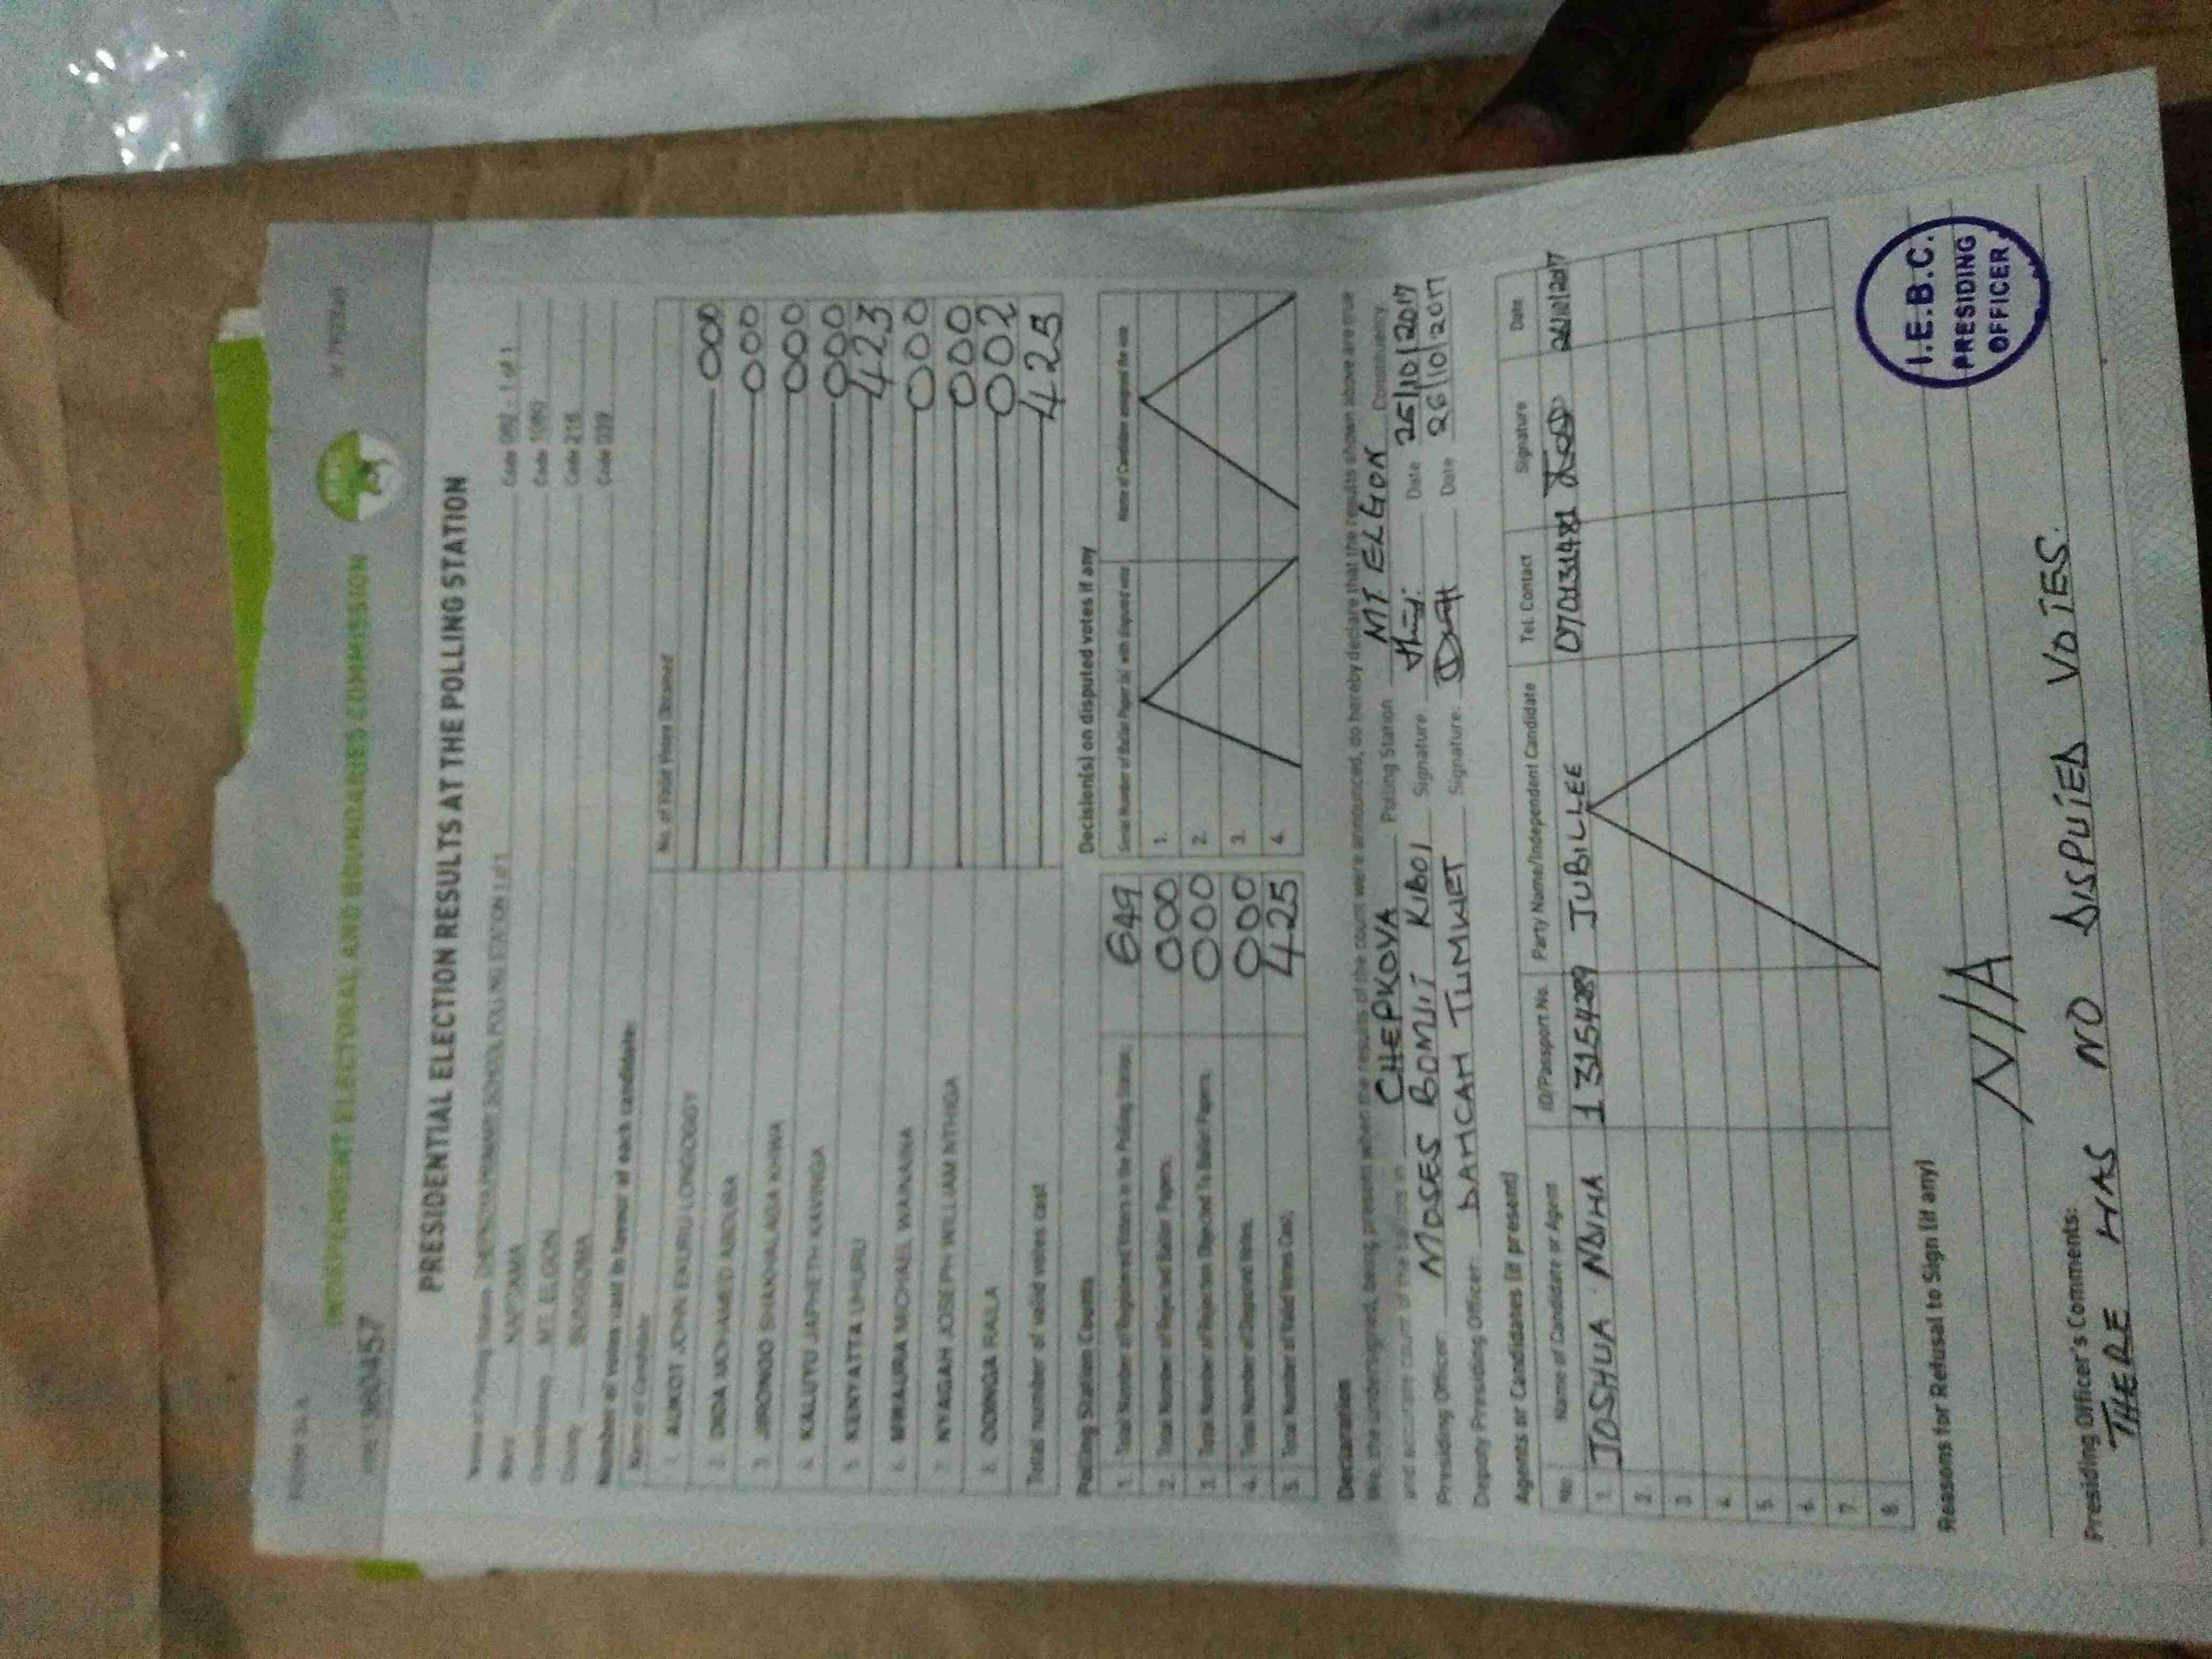 FORM 34 A
INDEPENDENT ELECTORAL AND BOUNDARIES COMMISSION
PRESIDENTIAL ELECTION RESULTS AT THE POLLING STATION
Name of Polling Station CHEPKOYA PRIMARY SCHOOL POLLING STATION 1 of 1 Code 092 - 1 of 1
Ward KAPTAMA Code 1080
Constituency MT. ELGON Code 216
County BUNGOMA Code 039
Number of votes cast in favour of each candidate:
Name of Candidate No. of Valid Votes Obtained
1. AUKOT JOHN EKURU LONGOGGY 000
2. DIDA MOHAMED ABDUBA 000
3. JIRONGO SHAKHALAGA KHWA 000
4. KALUYU JAPHETH KAVINGA 000
5. KENYATTA UHURU 423
6. MWAURA MICHAEL WAINAINA 000
7. NYAGAH JOSEPH WILLIAM NTHIGA 000
8. ODINGA RAILA 002
Total number of valid votes cast 425
Polling Station Counts
1. Total Number of Registered Voters in the Polling Station: 649
2. Total Number of Rejected Ballot Papers: 000
3. Total Number of Rejection Objected To Ballot Papers: 000
4. Total Number of Disputed Votes: 000
5. Total Number of Valid Votes Cast: 425
Decision(s) on disputed votes if any
Serial Number of Ballot Paper (s) with disputed vote Name of Candidate assigned the vote
1.
2.
3.
4.
Declaration
We, the undersigned, being present when the results of the count were announced, do hereby declare that the results shown above are true
and accurate count of the ballots in CHEPKOYA Polling Station MT ELGON Constituency
Presiding Officer: MOSES BOMUI KIBOI Signature: Date 26/10/2017
Deputy Presiding Officer: TUMWET Signature: Date 26/10/2017
Agents or Candidates (if present)
No. Name of Candidate or Agent ID/Passport No. Party Name/Independent Candidate Tel. Contact Signature Date
1. JOSHUA 13154289 JUBILLEE 26/10/2017
2
3
4
5
6
7
8
Reasons for Refusal to Sign (if any)
N/A
Presiding Officer's Comments:
THERE HAS NO DISPUTED VOTES.
I.E.B.C.
PRESIDING
OFFICER